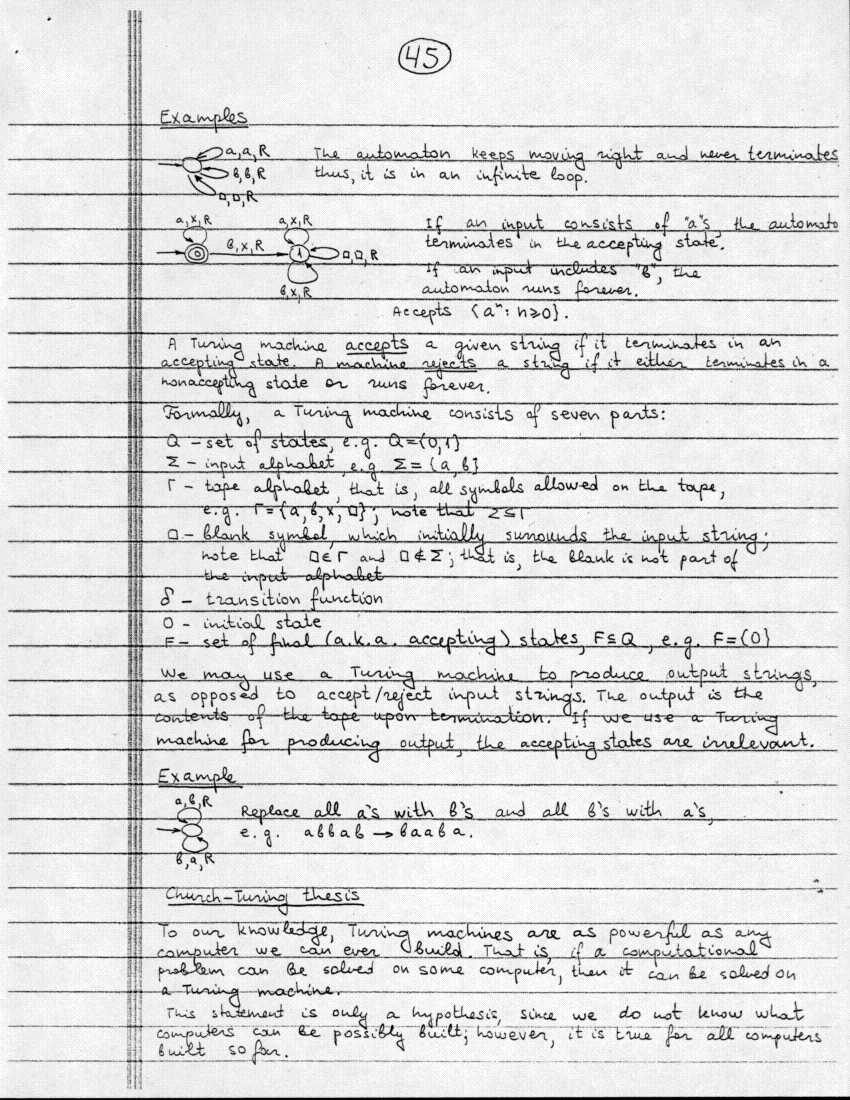 45
Examples
a,a,R
b,b,R
□,□,R
The automaton keeps moving right and never terminates
thus, it is in an infinite loop.
a,x,R
b,x,R
a,x,R
0
1
□,□,R
b,x,R
If an input consists of "a"s, the automato
terminates in the accepting state.
If an input includes "b", the
automaton runs forever.
Accepts {aⁿ: n≥0}.
A Turing machine accepts a given string if it terminates in an
accepting state. A machine rejects a string if it either terminates in a
nonaccepting state or runs forever.
Formally, a Turing machine consists of seven parts:
Q – set of states, e.g. Q={0,1}
Σ – input alphabet, e.g. Σ={a,b}
Γ – tape alphabet, that is, all symbols allowed on the tape,
e.g. Γ={a,b,x,□}; note that Σ⊆Γ
□ – blank symbol, which initially surrounds the input string;
note that □∈Γ and □∉Σ; that is, the blank is not part of
the input alphabet
δ – transition function
0 – initial state
F – set of final (a.k.a. accepting) states, F⊆Q, e.g. F={0}
We may use a Turing machine to produce output strings,
as opposed to accept/reject input strings. The output is the
contents of the tape upon termination. If we use a Turing
machine for producing output, the accepting states are irrelevant.
Example
a,b,R
b,a,R
Replace all a's with b's and all b's with a's,
e.g. abbab → baaba.
Church-Turing thesis
To our knowledge, Turing machines are as powerful as any
computer we can ever build. That is, if a computational
problem can be solved on some computer, then it can be solved on
a Turing machine.
This statement is only a hypothesis, since we do not know what
computers can be possibly built; however, it is true for all computers
built so far.